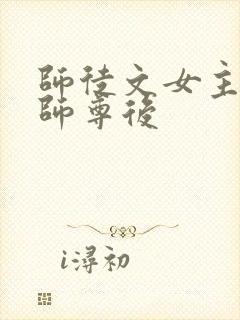 師徒文女主
師尊後
i潯初